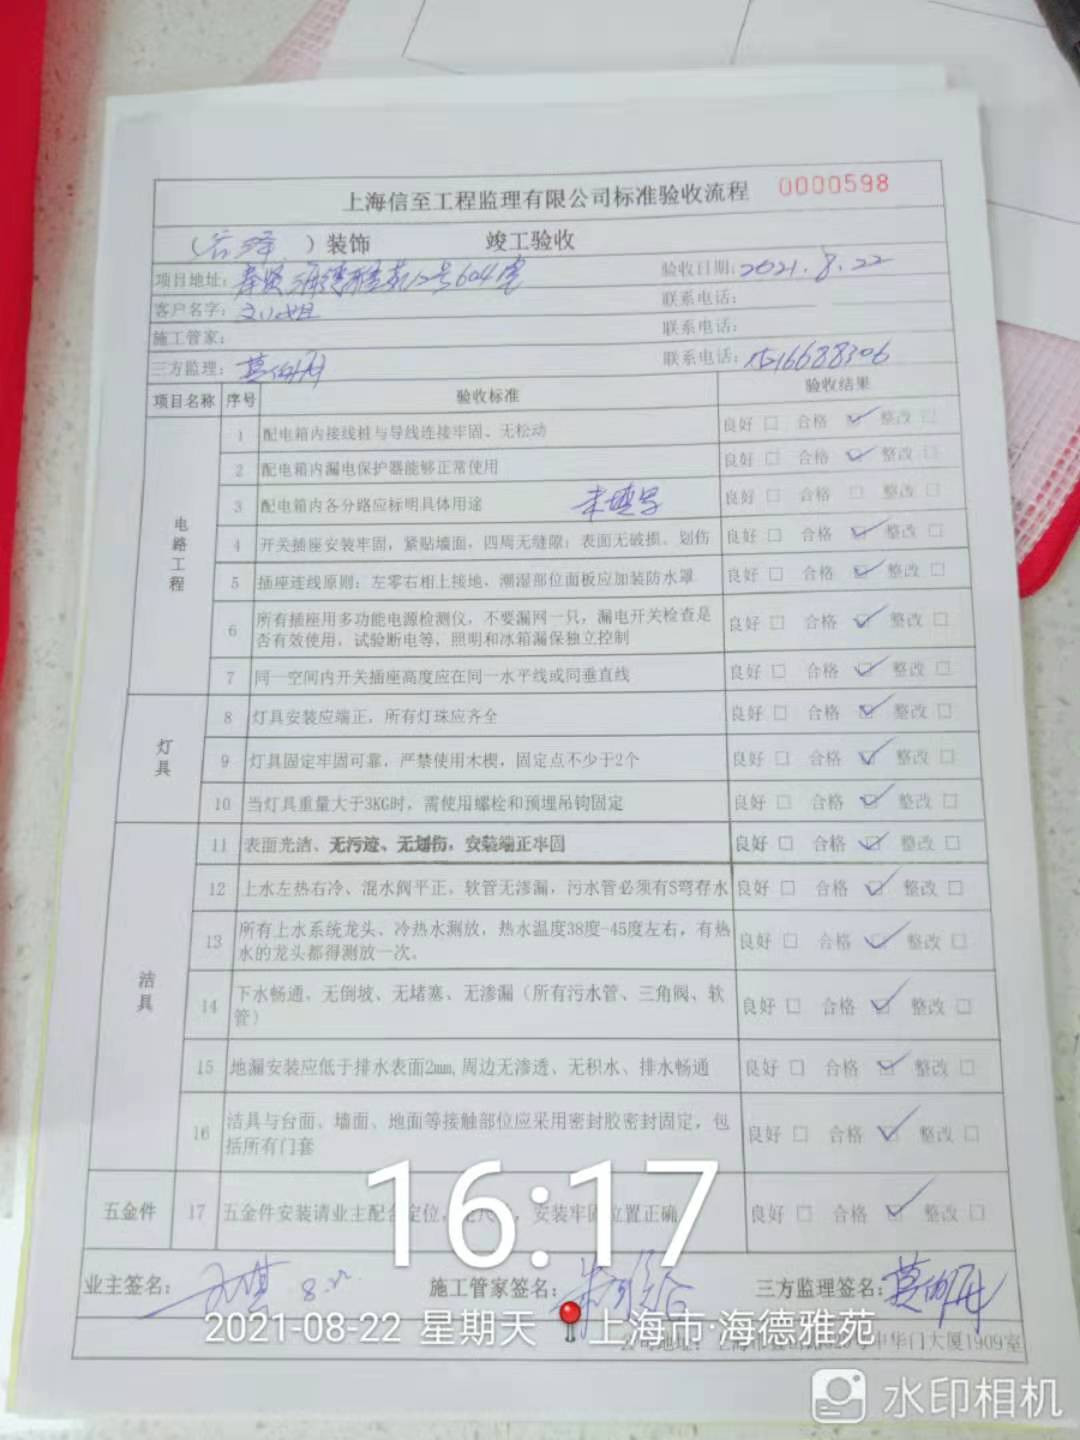 上海信至工程监理有限公司标准验收流程 0000598
（ ）装饰 竣工验收
项目地址：奉贤海德雅苑12号604室 验收日期：2021.8.22
客户名字：刘小姐 联系电话：
施工管家： 联系电话：
三方监理： 联系电话：15216688306
项目名称 序号 验收标准 验收结果
电路工程
1 配电箱内接线桩与导线连接牢固、无松动 良好 □ 合格 ☑ 整改 □
2 配电箱内漏电保护器能够正常使用 良好 □ 合格 ☑ 整改 □
3 配电箱内各分路应标明具体用途 未填写 良好 □ 合格 □ 整改 □
4 开关插座安装牢固，紧贴墙面，四周无缝隙；表面无破损、划伤 良好 □ 合格 ☑ 整改 □
5 插座连线原则：左零右相上接地、潮湿部位面板应加装防水罩 良好 □ 合格 ☑ 整改 □
6 所有插座用多功能电源检测仪，不要漏网一只，漏电开关检查是
否有效使用，试验断电等，照明和冰箱漏保独立控制 良好 □ 合格 ☑ 整改 □
7 同一空间内开关插座高度应在同一水平线或同垂直线 良好 □ 合格 ☑ 整改 □
灯具
8 灯具安装应端正，所有灯珠应齐全 良好 □ 合格 ☑ 整改 □
9 灯具固定牢固可靠，严禁使用木楔，固定点不少于2个 良好 □ 合格 ☑ 整改 □
10 当灯具重量大于3KG时，需使用螺栓和预埋吊钩固定 良好 □ 合格 ☑ 整改 □
洁具
11 表面光洁、无污迹、无划伤，安装端正牢固 良好 □ 合格 ☑ 整改 □
12 上水左热右冷、混水阀平正，软管无渗漏，污水管必须有S弯存水 良好 □ 合格 ☑ 整改 □
13 所有上水系统龙头、冷热水测放，热水温度38度-45度左右，有热
水的龙头都得测放一次。 良好 □ 合格 ☑ 整改 □
14 下水畅通、无倒坡、无堵塞、无渗漏（所有污水管、三角阀、软
管） 良好 □ 合格 ☑ 整改 □
15 地漏安装应低于排水表面2mm,周边无渗透、无积水、排水畅通 良好 □ 合格 ☑ 整改 □
16 洁具与台面、墙面、地面等接触部位应采用密封胶密封固定，包
括所有门套 良好 □ 合格 ☑ 整改 □
五金件 17 五金件安装请业主配合定位， 安装牢固位置正确 良好 □ 合格 ☑ 整改 □
16:17
业主签名： 8.22 施工管家签名： 三方监理签名：
2021-08-22 星期天 上海市·海德雅苑
公司地址： 中华门大厦1909室
水印相机